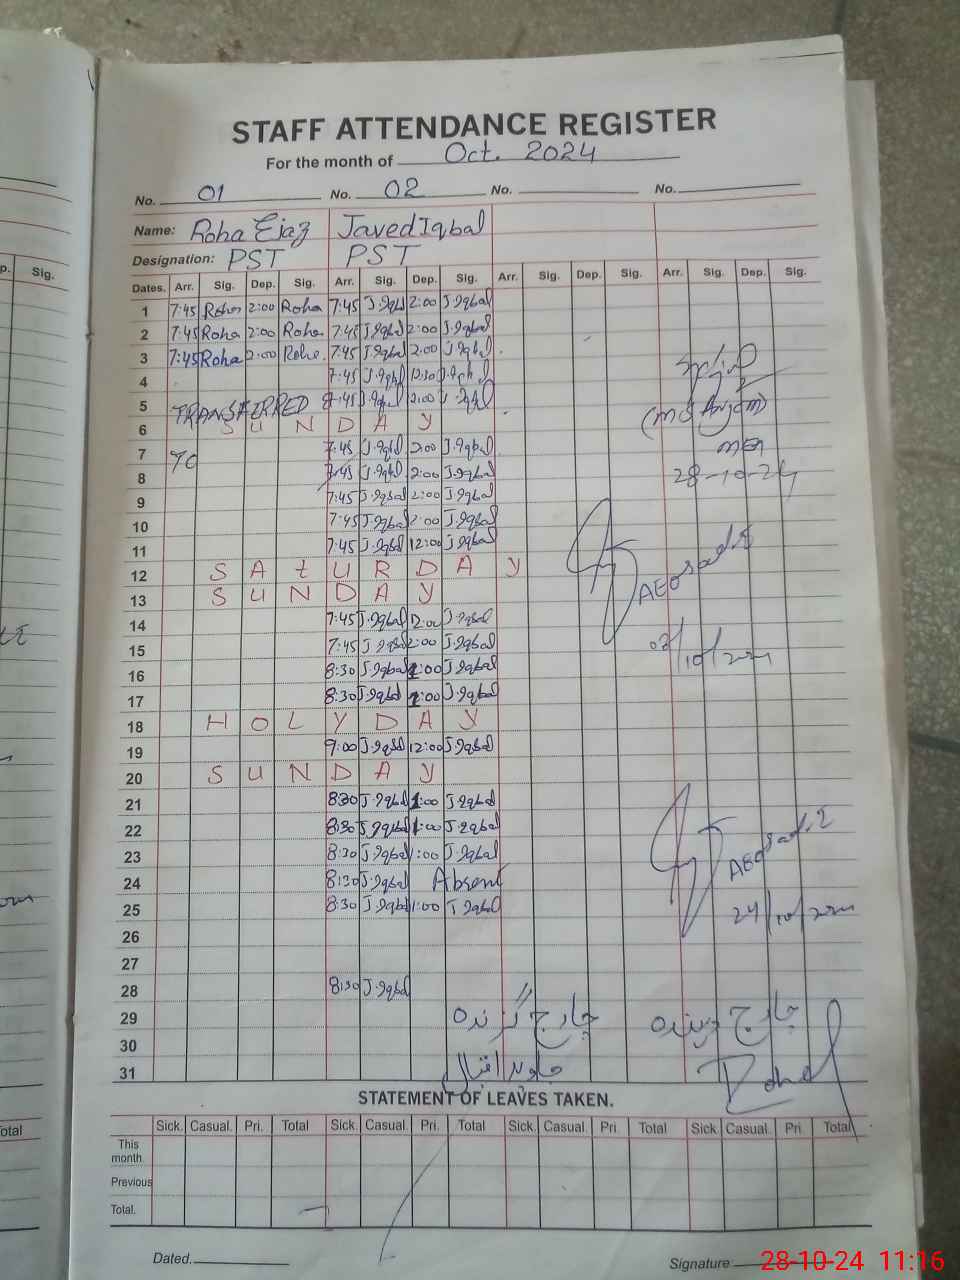 STAFF ATTENDANCE REGISTER
For the month of Oct. 2024
No. 01 No. 02 No. No.
Name: Roha Ejaz Javed Iqbal
Designation: PST PST
Dates. Arr. Sig. Dep. Sig. Arr. Sig. Dep. Sig. Arr. Sig. Dep. Sig. Arr. Sig. Dep. Sig.
1 7:45 Roha 2:00 Roha 7:45 J.Iqbal 2:00 J.Iqbal
2 7:45 Roha 2:00 Roha 7:45 J.Iqbal 2:00 J.Iqbal
3 7:45 Roha 2:00 Roha 7:45 J.Iqbal 2:00 J.Iqbal
4 7:45 J.Iqbal J.Iqbal
5 TRANSFERRED J.Iqbal J.Iqbal
6 S U N D A Y
(MS Anjum)
7 7:45 J.Iqbal 2:00 J.Iqbal
MEA
8 7:45 J.Iqbal 2:00 J.Iqbal
28-10-24
9 7:45 J.Iqbal 2:00 J.Iqbal
10 7:45 J.Iqbal 2:00 J.Iqbal
11 7:45 J.Iqbal 12:00 J.Iqbal
12 S A t U R D A Y
13 S U N D A Y
AEO
14 7:45 J.Iqbal J.Iqbal
15 7:45 J.Iqbal 2:00 J.Iqbal
16 8:30 J.Iqbal 1:00 J.Iqbal
17 8:30 J.Iqbal 1:00 J.Iqbal
18 H O L Y D A Y
19 9:00 J.Iqbal 12:00 J.Iqbal
20 S U N D A Y
21 8:30 J.Iqbal 1:00 J.Iqbal
22 8:30 J.Iqbal 1:00 J.Iqbal
23 8:30 J.Iqbal 1:00 J.Iqbal
AEO
24 8:30 J.Iqbal Absent
25 8:30 J.Iqbal 1:00 J.Iqbal
26
27
28 8:30 J.Iqbal
29 چارج گرندہ چارج دہندہ
30
31 جاوید اقبال
STATEMENT OF LEAVES TAKEN.
Sick. Casual. Pri. Total Sick. Casual. Pri. Total Sick. Casual. Pri. Total Sick. Casual. Pri. Total
This month.
Previous
Total.
Dated. Signature:
28-10-24 11:16